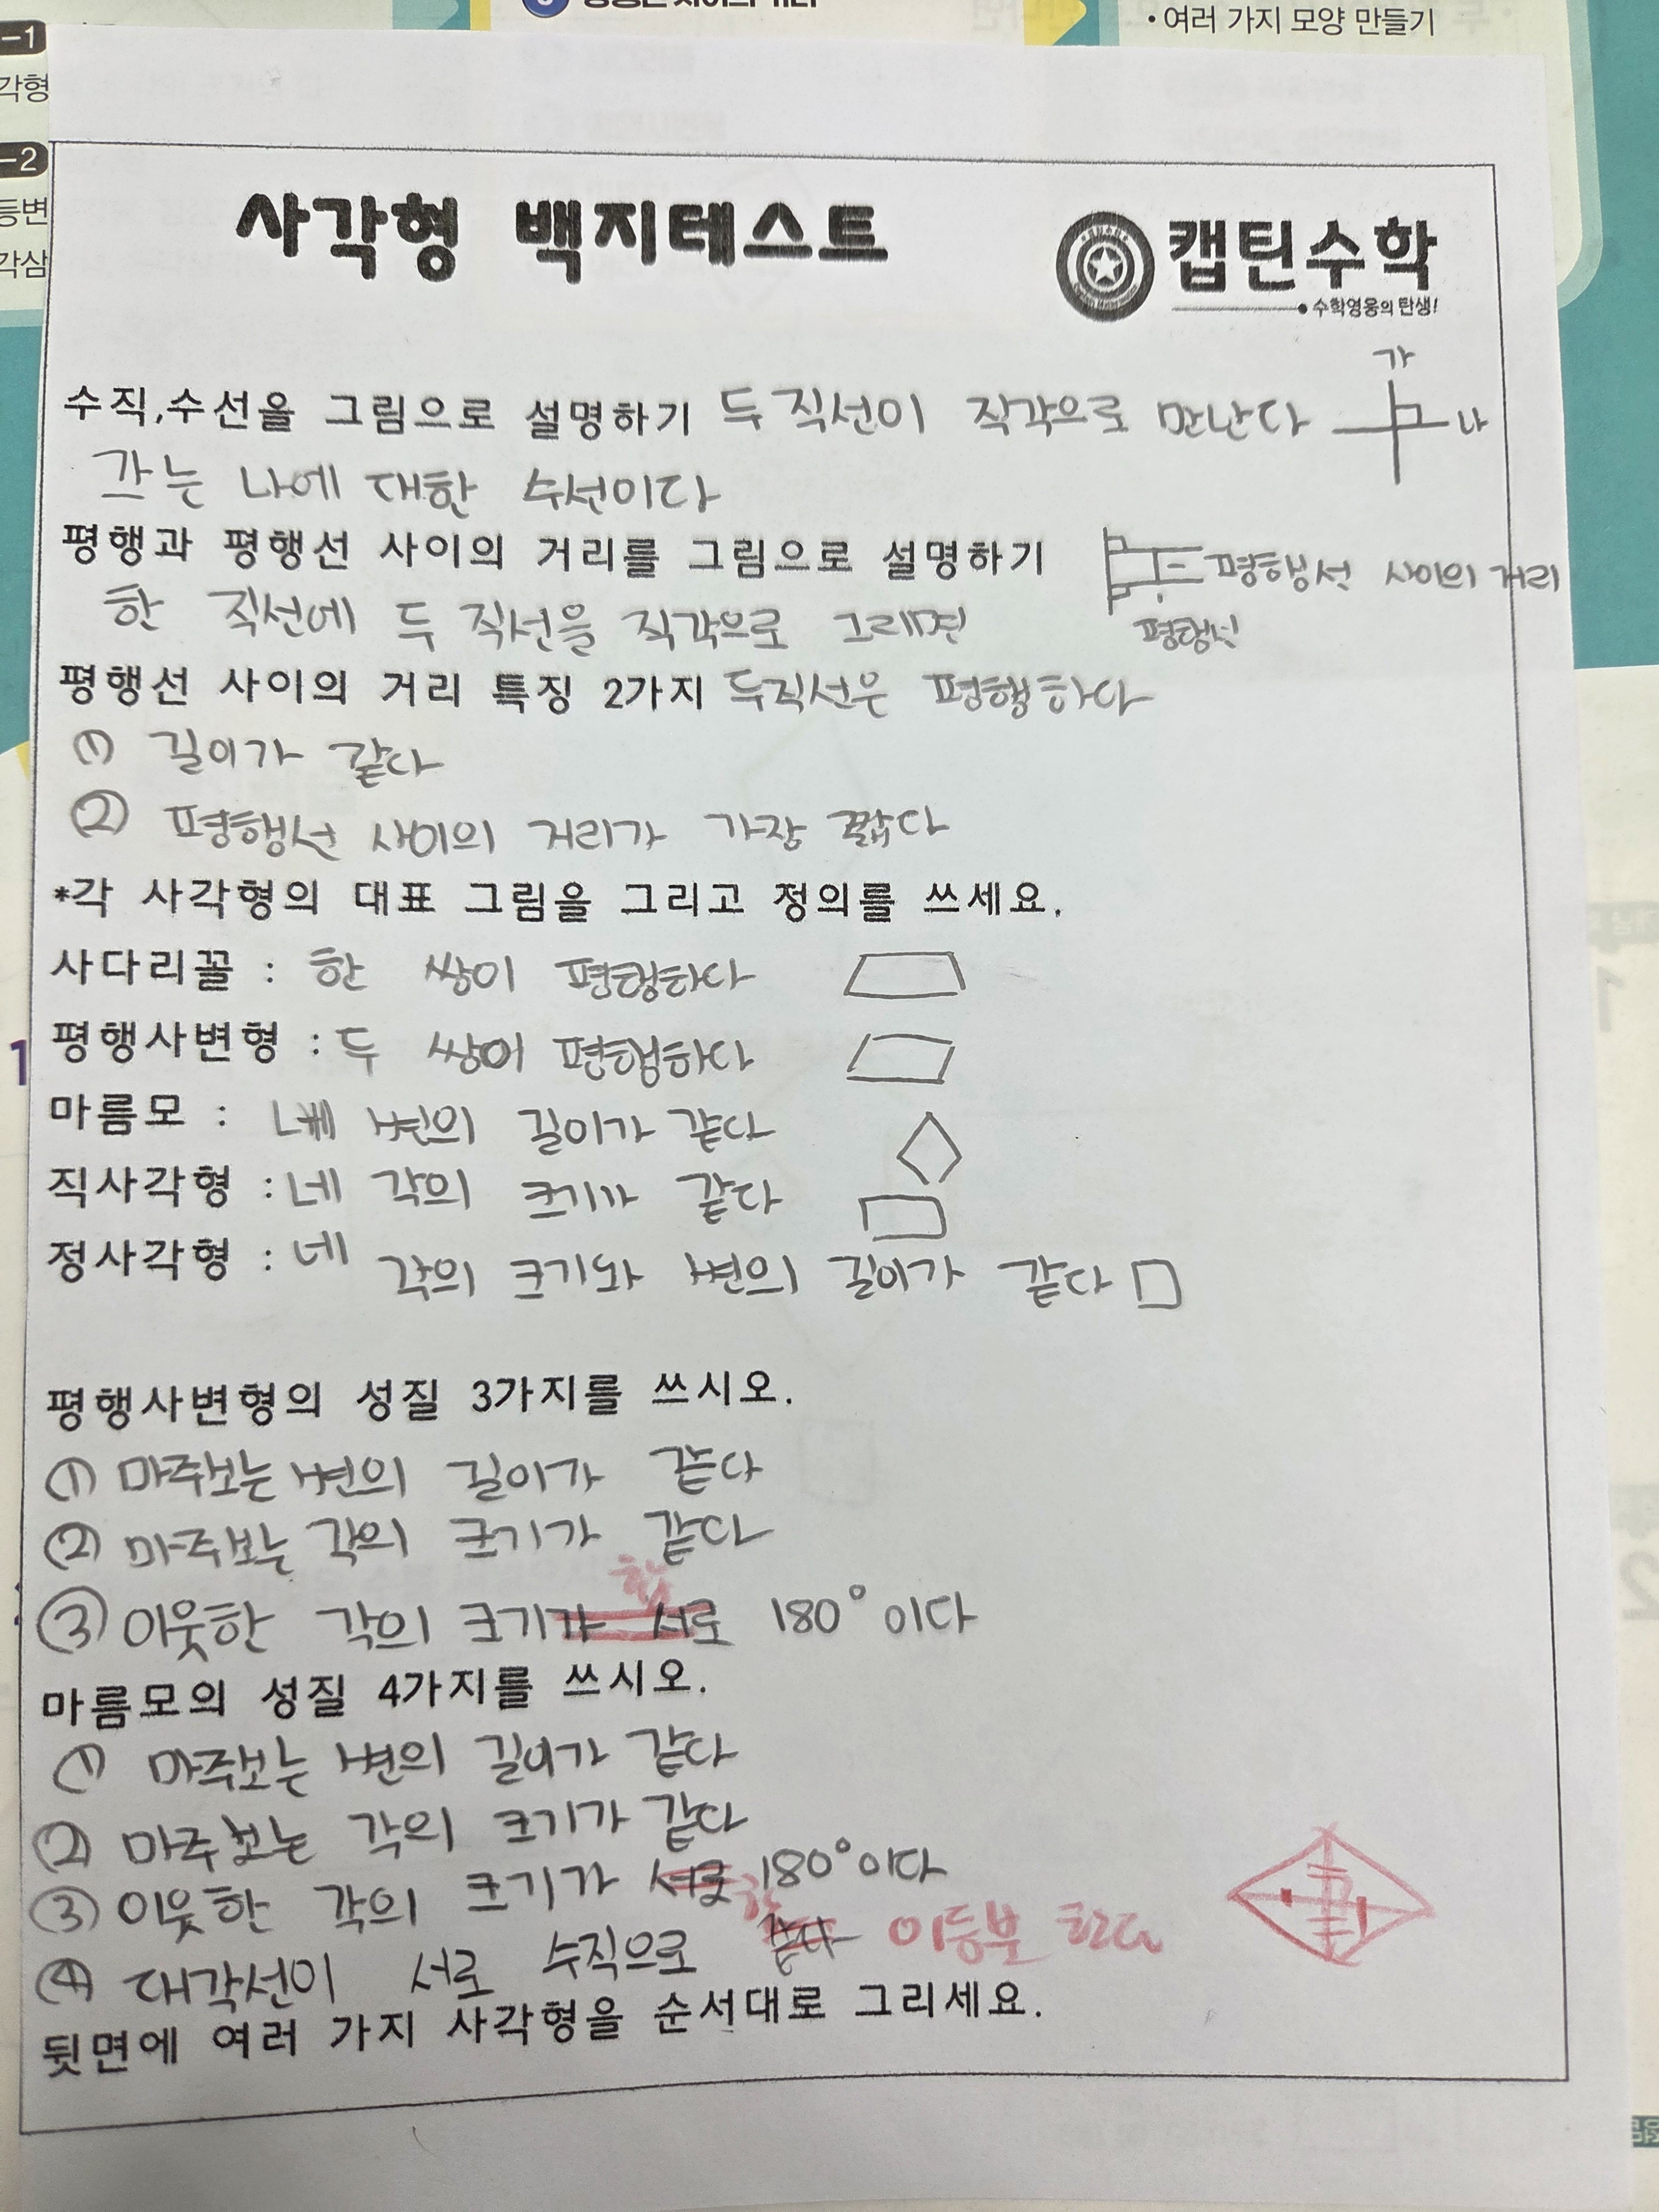 • 여러 가지 모양 만들기
-1
각형
-2
등변
각삼
사각형 백지테스트
캡틴수학
수학영웅의 탄생!
가
수직,수선을 그림으로 설명하기 두 직선이 직각으로 만난다 나
가는 나에 대한 수선이다
평행과 평행선 사이의 거리를 그림으로 설명하기 평행선 사이의 거리
한 직선에 두 직선을 직각으로 그래면 평행선
평행선 사이의 거리 특징 2가지 두직선은 평행하다
① 길이가 같다
② 평행선 사이의 거리가 가장 짧다
*각 사각형의 대표 그림을 그리고 정의를 쓰세요.
사다리꼴 : 한 쌍이 평행하다
평행사변형 : 두 쌍이 평행하다
마름모 : 네 변의 길이가 같다
직사각형 : 네 각의 크기가 같다
정사각형 : 네 각의 크기와 변의 길이가 같다
평행사변형의 성질 3가지를 쓰시오.
① 마주보는 변의 길이가 같다
② 마주보는 각의 크기가 같다
합
③ 이웃한 각의 크기가 서로 180°이다
마름모의 성질 4가지를 쓰시오.
① 마주보는 변의 길이가 같다
② 마주보는 각의 크기가 같다
③ 이웃한 각의 크기가 서로 180°이다
합
④ 대각선이 서로 수직으로 같다 이등분 한다
뒷면에 여러 가지 사각형을 순서대로 그리세요.
1